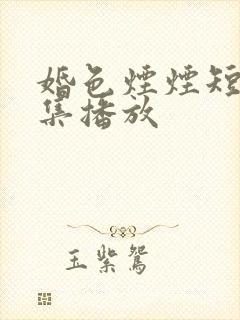 婚色煙煙短
集播放
玉紫鴛